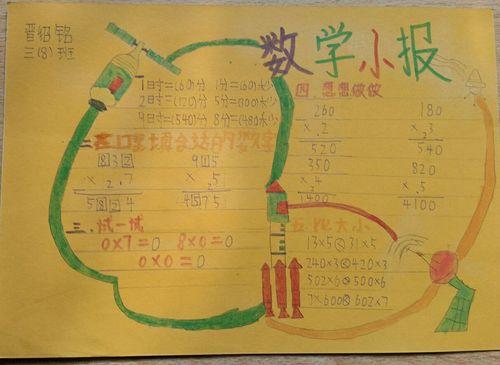 晋绍铭
三(8)班
数学小报
1时=(60)分 1分=(60)秒
2时=(120)分 5分=(300)秒
9时=(540)分 8分=(480)秒
二在口里填合适的数字
832
× 2.7
5824
915
× 5
4575
三.试一试
0×7=0 8×0=0
0×0=0
四 想想做做
260
× .2
520
180
× 3
540
350
× 4
1400
820
× .5
4100
五.比大小
13×5<31×5
240×3<420×3
502×6>500×6
7×600<602×7